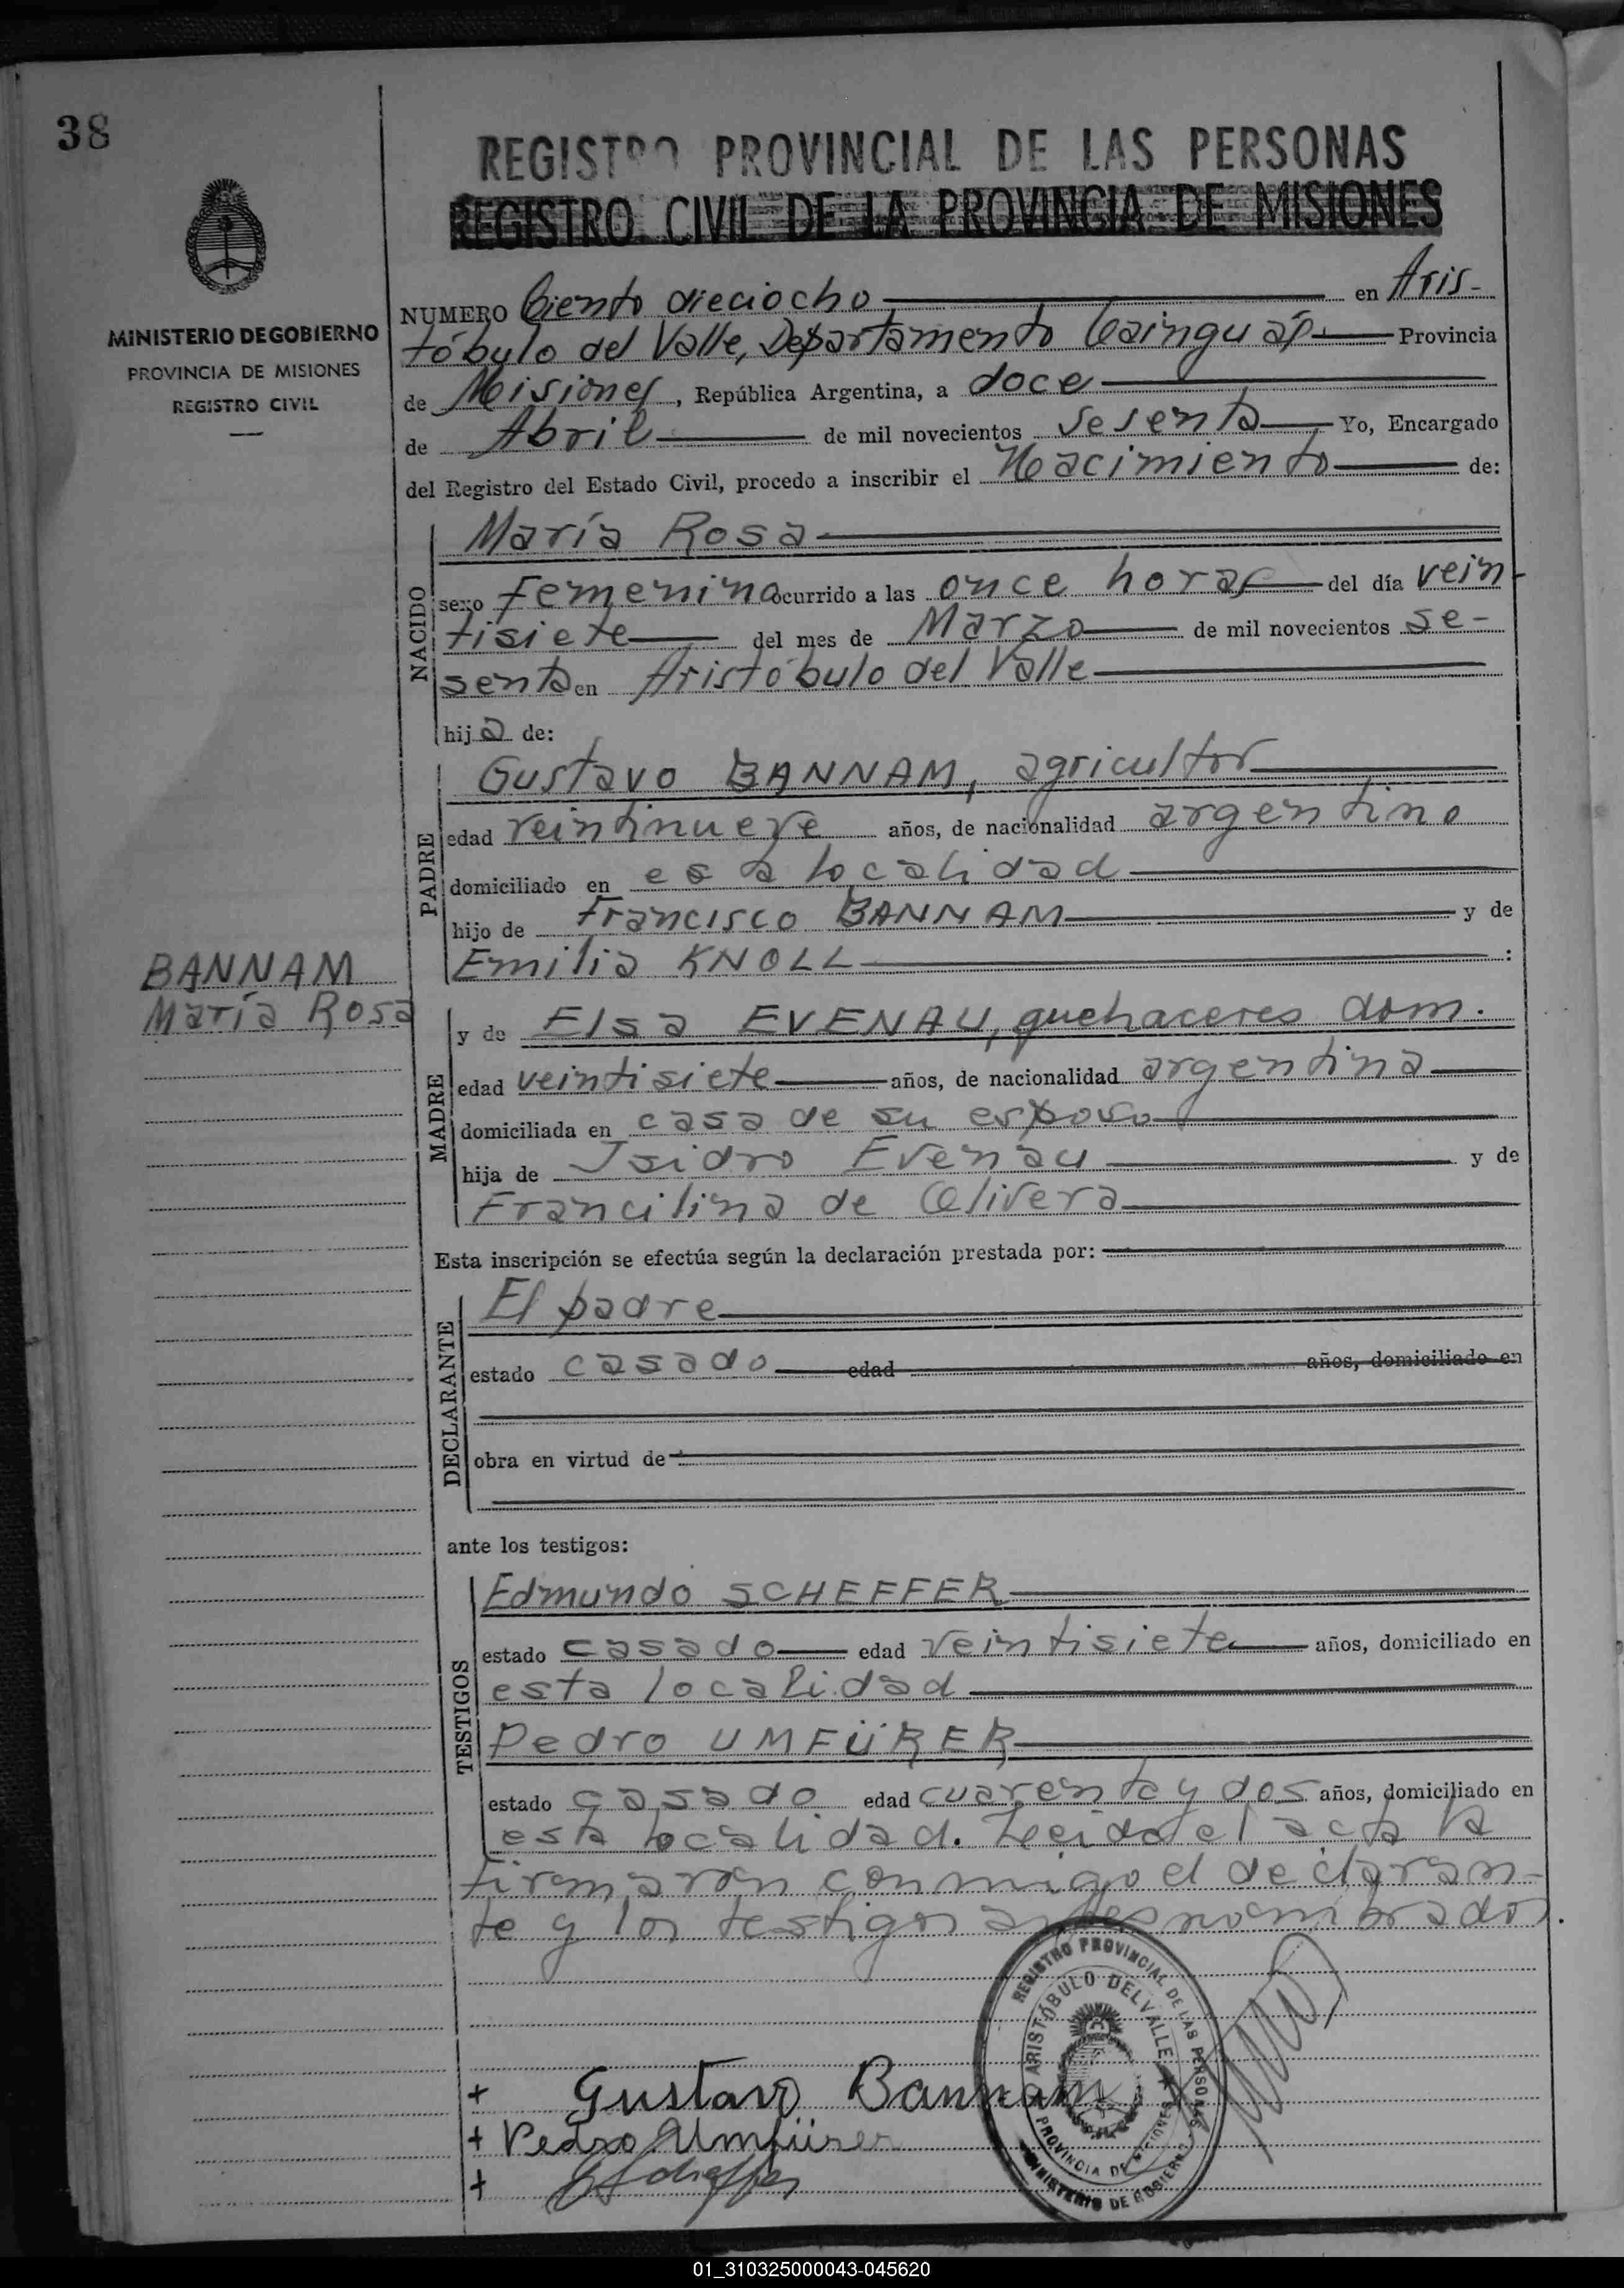 38
REGISTRO PROVINCIAL DE LAS PERSONAS
REGISTRO CIVIL DE LA PROVINCIA DE MISIONES
MINISTERIO DE GOBIERNO
PROVINCIA DE MISIONES
REGISTRO CIVIL
NUMERO Ciento dieciocho en Aris-
tóbulo del Valle, Departamento Cainguás Provincia
de Misiones, República Argentina, a doce
de Abril de mil novecientos sesenta Yo, Encargado
del Registro del Estado Civil, procedo a inscribir el Nacimiento de:
NACIDO
María Rosa
sexo Femenino ocurrido a las once horas del día vein
tisiete del mes de Marzo de mil novecientos se-
senta en Aristóbulo del Valle
hija de:
PADRE
Gustavo BANNAM, agricultor
edad veintinueve años, de nacionalidad argentino
domiciliado en esta localidad
hijo de Francisco BANNAM y de
Emilia KNOLL :
BANNAM
María Rosa
MADRE
y de Elsa EVENAU, quehaceres dom.
edad veintisiete años, de nacionalidad argentina
domiciliada en casa de su esposo
hija de Isidro Evenau y de
Francilina de Olivera
Esta inscripción se efectúa según la declaración prestada por:
DECLARANTE
El padre
estado casado edad años, domiciliado en
obra en virtud de
ante los testigos:
TESTIGOS
Edmundo SCHEFFER
estado casado edad veintisiete años, domiciliado en
esta localidad
Pedro UMFÜRER
estado casado edad cuarenta y dos años, domiciliado en
esta localidad. Leída el acta la
firmaron conmigo el declaran-
te y los testigos antesnombrados.
REGISTRO PROVINCIAL DE LAS PERSONAS
ARISTÓBULO DEL VALLE
PROVINCIA DE MISIONES
MINISTERIO DE GOBIERNO
+ Gustavo Bannam
+ Pedro Umfürer
+ Scheffer
01_310325000043-045620